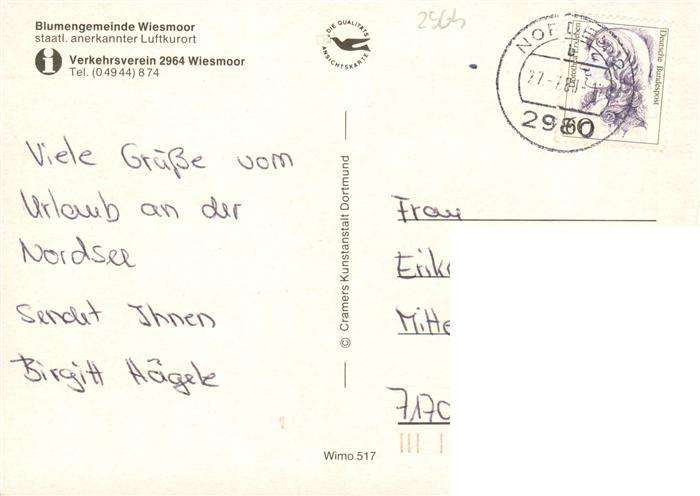 Blumengemeinde Wiesmoor
staatl. anerkannter Luftkurort
i Verkehrsverein 2964 Wiesmoor
Tel. (0 49 44) 8 74
DIE QUALITÄTS
ANSICHTSKARTE
2964
NORDEN
27.-7.
2980
60
Deutsche Bundespost
Viele Grüße vom
Urlaub an der
Nordsee
sendet Ihnen
Birgitt Hägele
© Cramers Kunstanstalt Dortmund
Frau
Erik
Mitte
7170
Wimo 517